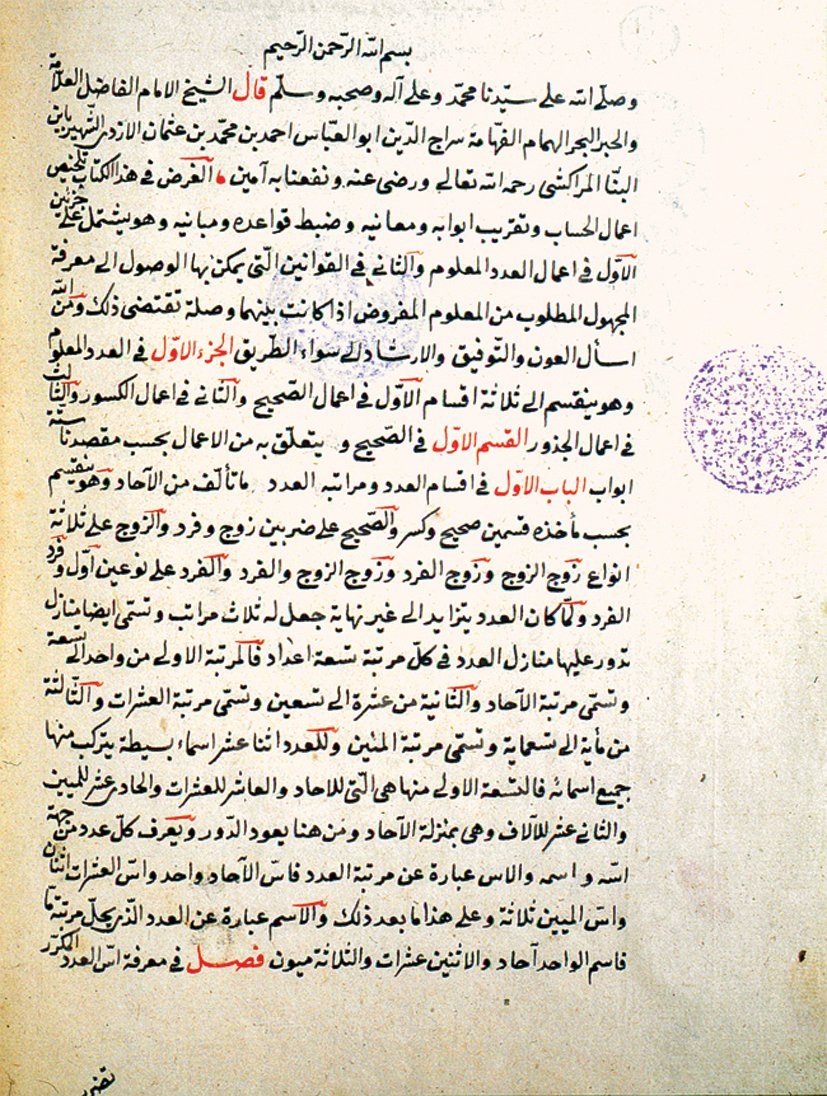 بسم الله الرّحمن الرّحيم
وصلّى الله على سيّدنا محمّد وعلى آله وصحبه وسلّم قال الشيخ الامام الفاضل العلّامة
والحبر البحر الهمام الفهّامة سراج الدّين ابو العبّاس احمد بن محمّد بن عثمان الازدى الشّهير بابن
البنّا المراكشى رحمه الله تعالى ورضى عنه ونفعنا به آمين الغرض فى هذا الكتاب تلخيص
اعمال الحساب وتقريب ابوابه ومعانيه وضبط قواعده ومبانيه وهو يشتمل على جزئين
الاوّل فى اعمال العدد المعلوم والثانى فى القوانين الّتى يمكن بها الوصول الى معرفة
المجهول المطلوب من المعلوم المفروض اذا كانت بينهما وصلة تقتضى ذلك ومن الله
اسأل العون والتّوفيق والارشاد الى سواء الطّريق الجزء الاوّل فى العدد المعلوم
وهو ينقسم الى ثلاثة اقسام الاوّل فى اعمال الصّحيح والثانى فى اعمال الكسور والثالث
فى اعمال الجذور القسم الاوّل فى الصّحيح و يتعلّق به من الاعمال بحسب مقصدنا ستّة
ابواب الباب الاوّل فى اقسام العدد ومراتبه العدد ما تألّف من الآحاد وهو ينقسم
بحسب مأخذه قسمين صحيح وكسر والصّحيح على ضربين زوج وفرد والزوج على ثلاثة
انواع زوج الزوج وزوج الفرد وزوج الزوج والفرد والفرد على نوعين اوّل وفرد
الفرد ولمّا كان العدد يتزايد الى غير نهاية جعل له ثلاث مراتب وتسمّى ايضا منازل
تدور عليها منازل العدد فى كلّ مرتبة تسعة اعداد فالمرتبة الاولى من واحد الى تسعة
وتسمّى مرتبة الآحاد والثانية من عشرة الى تسعين وتسمّى مرتبة العشرات والثّالثة
من مأية الى تسعماية وتسمّى مرتبة المئين وللعدد اثنا عشر اسماء بسيطة يتركب منها
جميع اسمائه فالتسعة الاولى منها هى الّتى للاحاد والعاشر للعشرات والحادى عشر للميين
والثانى عشر للآلاف وهى بمنزلة الآحاد ومن هنا يعود الدّور ويعرف كلّ عدد من جهة
اسّه واسمه والاس عبارة عن مرتبة العدد فاسّ الآحاد واحد واسّ العشرات اثنان
واسّ الميين ثلاثة وعلى هذا ما بعد ذلك والاسم عبارة عن العدد الّذى يحلّ مرتبة ما
فاسم الواحد آحاد والاثنين عشرات والثلاثة ميون فصل فى معرفة اسّ العدد المكرّر